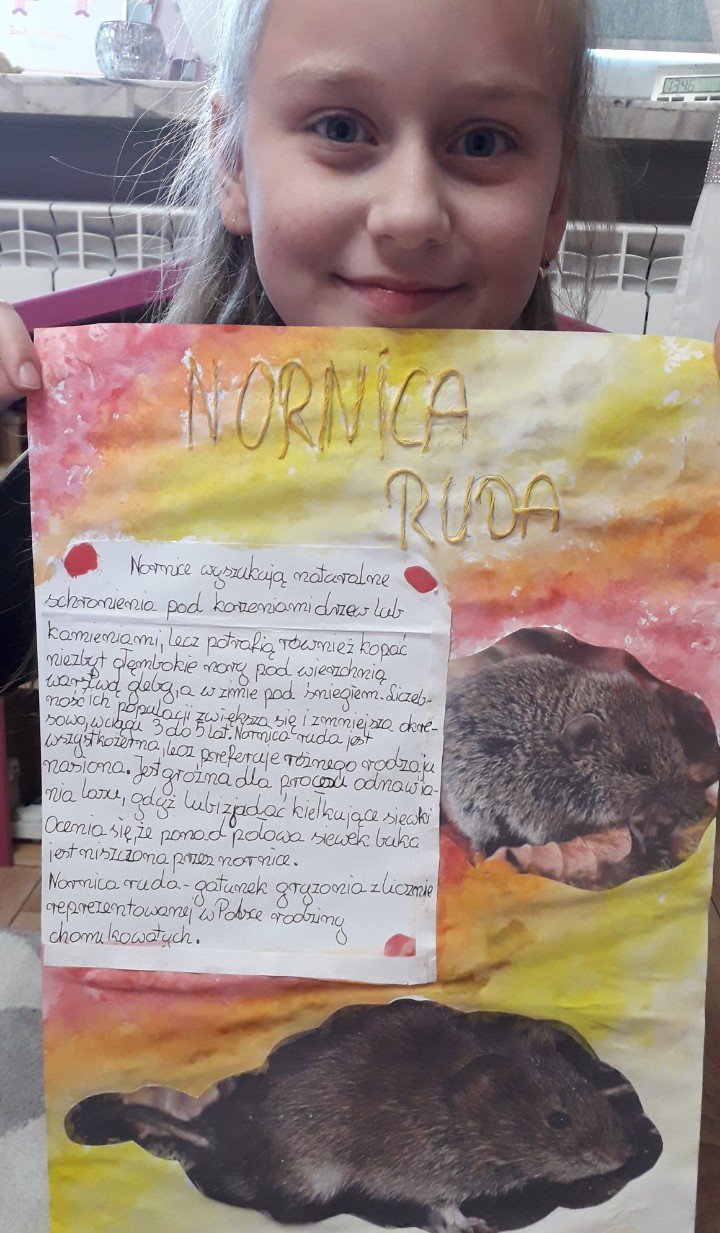 NORNICA
RUDA
Nornice wyszukają naturalne
schronienia pod korzeniami drzew lub
kamieniami, lecz potrafią również kopać
niezbyt głembokie nory pod wierzchnią
warstwą gleby, a w zimie pod śniegiem. Liczeb-
ność ich populacji zwiększa się i zmniejsza okre-
sowo, w ciągu 3 do 5 lat. Nornica ruda jest
wszystkożerna, lecz preferuje różnego rodzaju
nasiona. Jest groźna dla procesu odnawia-
nia lasu, gdyż lubi zjadać kiełkujące siewki
Ocenia się że ponad połowa siewek buka
jest niszczona przez nornice.
Nornica ruda - gatunek gryzonia z licznie
reprezentowanej w Polsce rodziny
chomikowatych.